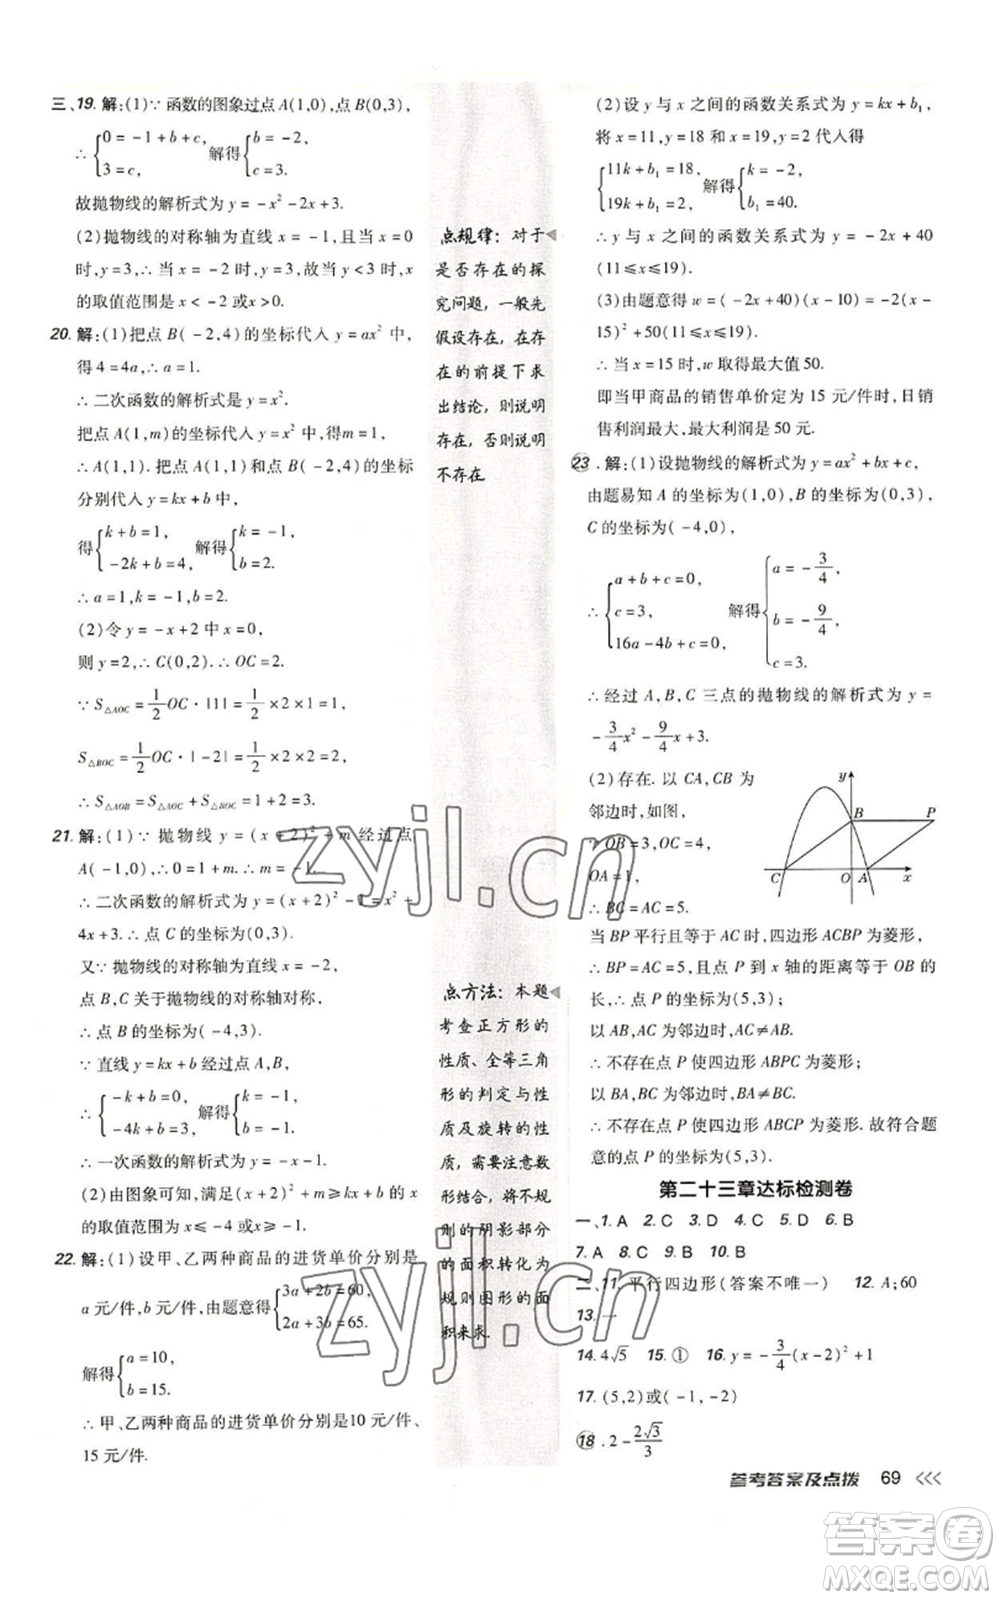 三、19. 解:(1)∵函数的图象过点A(1,0),点B(0,3),
∴{0=-1+b+c, 3=c, 解得{b=-2, c=3.
故抛物线的解析式为y=-x²-2x+3.
(2)抛物线的对称轴为直线x=-1,且当x=0
时,y=3,∴当x=-2时,y=3,故当y<3时,x
的取值范围是x<-2或x>0.
20. 解:(1)把点B(-2,4)的坐标代入y=ax²中,
得4=4a,∴a=1.
∴二次函数的解析式是y=x².
把点A(1,m)的坐标代入y=x²,得m=1,
∴A(1,1).把点A(1,1)和点B(-2,4)的坐标
分别代入y=kx+b中,
得{k+b=1, -2k+b=4, 解得{k=-1, b=2.
∴a=1,k=-1,b=2.
(2)令y=-x+2中x=0,
则y=2,∴C(0,2).∴OC=2.
∵S△AOC=1/2OC·|1|=1/2×2×1=1,
S△BOC=1/2OC·|-2|=1/2×2×2=2,
∴S△AOB=S△AOC+S△BOC=1+2=3.
21. 解:(1)∵抛物线y=(x+2)²+m经过点
A(-1,0),∴0=1+m.∴m=-1.
∴二次函数的解析式为y=(x+2)²-1=x²+
4x+3.∴点C的坐标为(0,3).
又∵抛物线的对称轴为直线x=-2,
点B,C关于抛物线的对称轴对称,
∴点B的坐标为(-4,3).
∵直线y=kx+b经过点A,B,
∴{-k+b=0, -4k+b=3, 解得{k=-1, b=-1.
∴一次函数的解析式为y=-x-1.
(2)由图象可知,满足(x+2)²+m≥kx+b的x
的取值范围为x≤-4或x≥-1.
22. 解:(1)设甲、乙两种商品的进货单价分别是
a元/件,b元/件,由题意得{3a+2b=60, 2a+3b=65.
解得{a=10, b=15.
∴甲、乙两种商品的进货单价分别是10元/件、
15元/件.
点规律:对于
是否存在的探
究问题,一般先
假设存在,在存
在的前提下求
出结论,则说明
存在,否则说明
不存在.
点方法:本题
考查正方形的
性质、全等三角
形的判定与性
质及旋转的性
质,需要注意数
形结合,将不规
则的阴影部分
的面积转化为
规则图形的面
积来求.
(2)设y与x之间的函数关系式为y=kx+b₁,
将x=11,y=18和x=19,y=2代入得
{11k+b₁=18, 19k+b₁=2. 解得{k=-2, b₁=40.
∴y与x之间的函数关系式为y=-2x+40
(11≤x≤19).
(3)由题意得w=(-2x+40)(x-10)=-2(x-
15)²+50(11≤x≤19).
∴当x=15时,w取得最大值50.
即当甲商品的销售单价定为15元/件时,日销
售利润最大,最大利润是50元.
23. 解:(1)设抛物线的解析式为y=ax²+bx+c,
由题易知A的坐标为(1,0),B的坐标为(0,3),
C的坐标为(-4,0),
∴{a+b+c=0, c=3, 16a-4b+c=0, 解得{a=-3/4, b=-9/4, c=3.
∴经过A,B,C三点的抛物线的解析式为y=
-3/4x²-9/4x+3.
(2)存在.以CA,CB为
邻边时,如图,
∵OB=3,OC=4,
OA=1,
∴BC=AC=5.
当BP平行且等于AC时,四边形ACBP为菱形,
∴BP=AC=5,且点P到x轴的距离等于OB的
长,∴点P的坐标为(5,3);
以AB,AC为邻边时,AC≠AB.
∴不存在点P使四边形ABPC为菱形;
以BA,BC为邻边时,BA≠BC.
∴不存在点P使四边形ABCP为菱形.故符合题
意的点P的坐标为(5,3).
y
B
P
C
O
A
x
第二十三章达标检测卷
一、1. A 2. C 3. D 4. C 5. D 6. B
7. A 8. C 9. B 10. B
二、11. 平行四边形(答案不唯一) 12. A;60
13. —
14. 4√5 15. ① 16. y=-3/4(x-2)²+1
17. (5,2)或(-1,-2)
18. 2-2√3/3
参考答案及点拨 69
zyjl.cn
zyjl.cn
答案圈
MXQE.COM